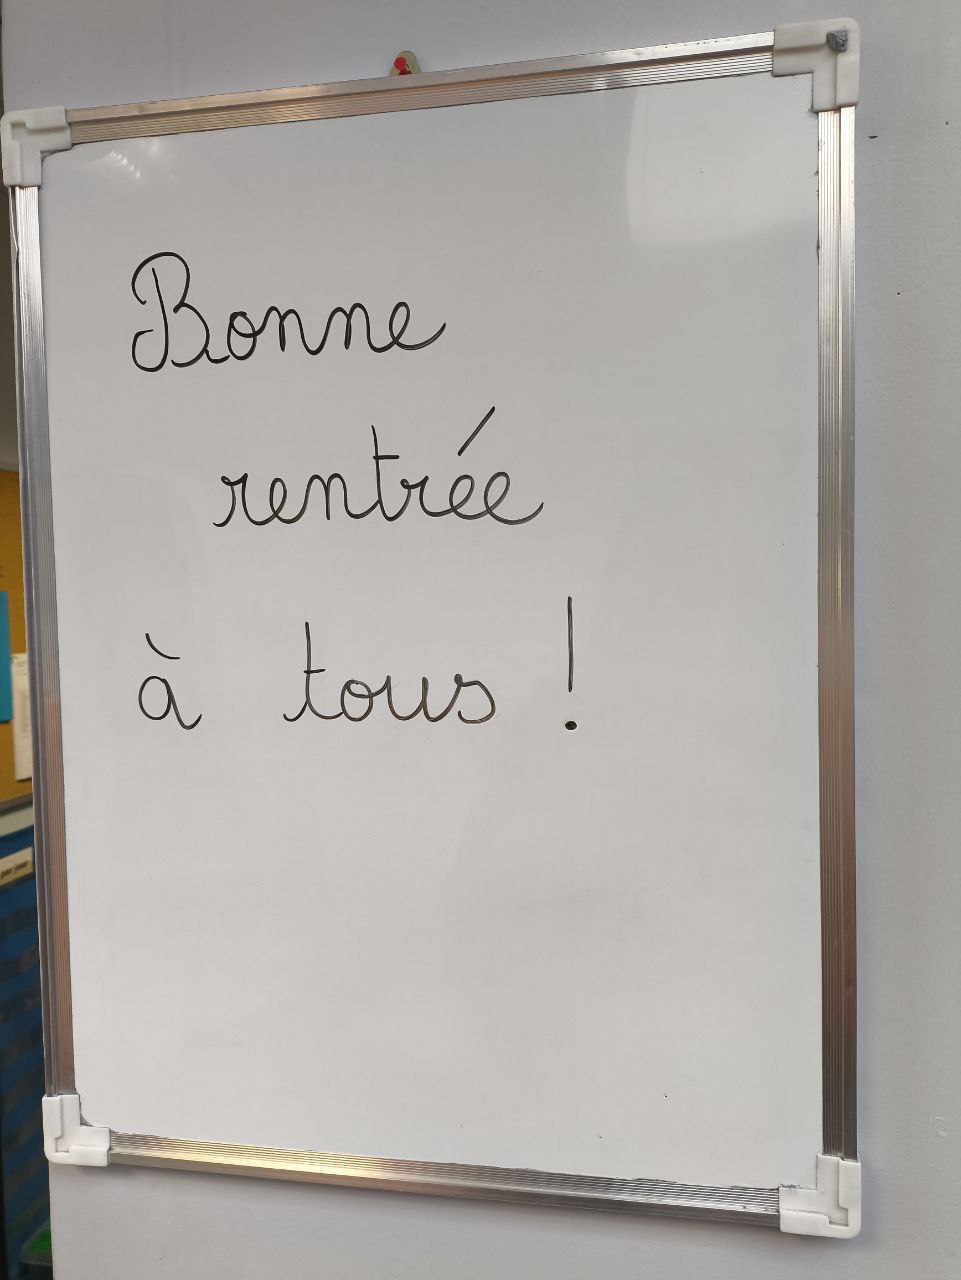 Bonne
rentrée
à tous !